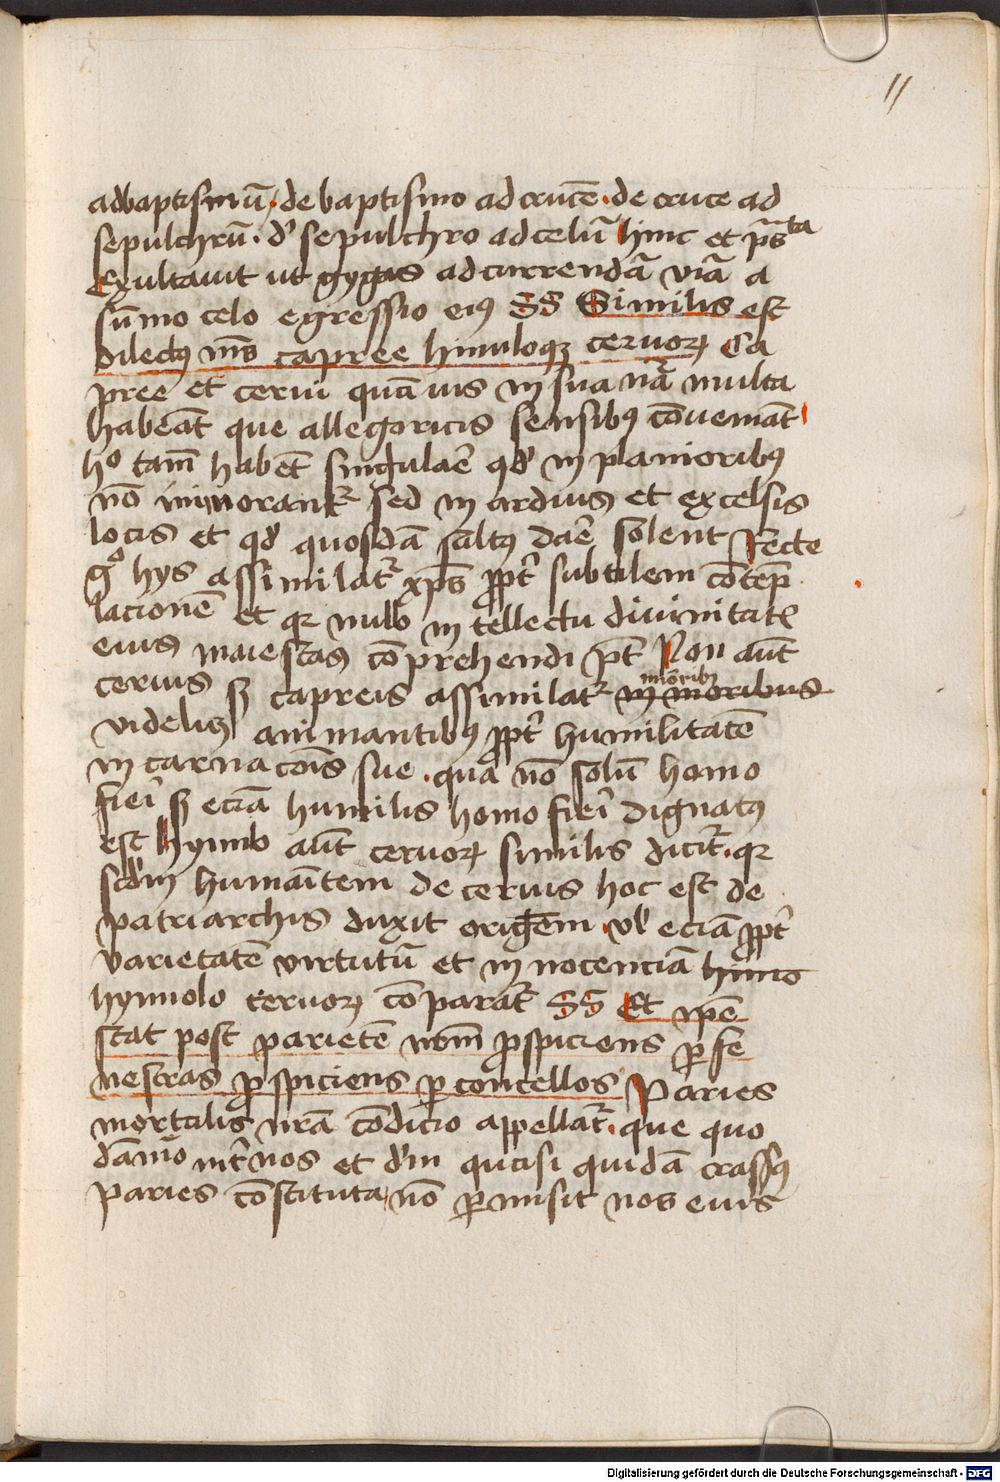 11
adbaptismū · de baptismo ad crucē · de cruce ad
sepulchrū · d' sepulchro ad celū hinc et ps̄ta
Exultauit ut gygas ad currendā viā a
sūmo celo egressio eiꝰ SS Similis est
dilectꝰ ms̄ capree hinuloqꝫ ceruoꝝ Ca
pree et cerui quāuis in sua nā multa
habeāt que allegoricis sensibꝰ cōueniāt
hº tam̄ habēt singulaē qd' in planioribꝰ
nō immorantᷣ sed in arduis et excelsis
locis et qd' quosdā saltꝰ daē solent Recte
gº hys assimilatᷣ xp̄s ꝓpt' subtilem cōtēp
lacionē et qꝛ nullo intellectu diuinitatꝭ
eius maiestas cōprehendi pt̄ Non aūt
ceruis sꝫ capreis assimilatᷣ in moribus
miōribꝰ
videlicꝫ animantibꝰ ꝓpt' humilitatē
in carnacōis sue · qua nō solū homo
fieī sꝫ eciā humilis homo fieī dignatꝰ
est hynnlo aūt ceruoꝝ similis dicit' · qꝛ
scd'm humaītem de ceruis hoc est de
patriarchis duxit origēm · vl' eciā ꝓpt'
varietatē virtutū et in nocenciā hinno
hynnolo ceruoꝝ cōparat' SS Et ip̄e
stat post parietē nr̄m ꝓspiciens ꝑ fe
nestras ꝓspiciens ꝑ concellos Paries
mortalis nrā cōdicio appellat' · que quo
dāmō int' nos et d'm quasi quidā crassꝰ
paries cōstituta nō ꝑmisit nos eius
Digitalisierung gefördert durch die Deutsche Forschungsgemeinschaft - DFG